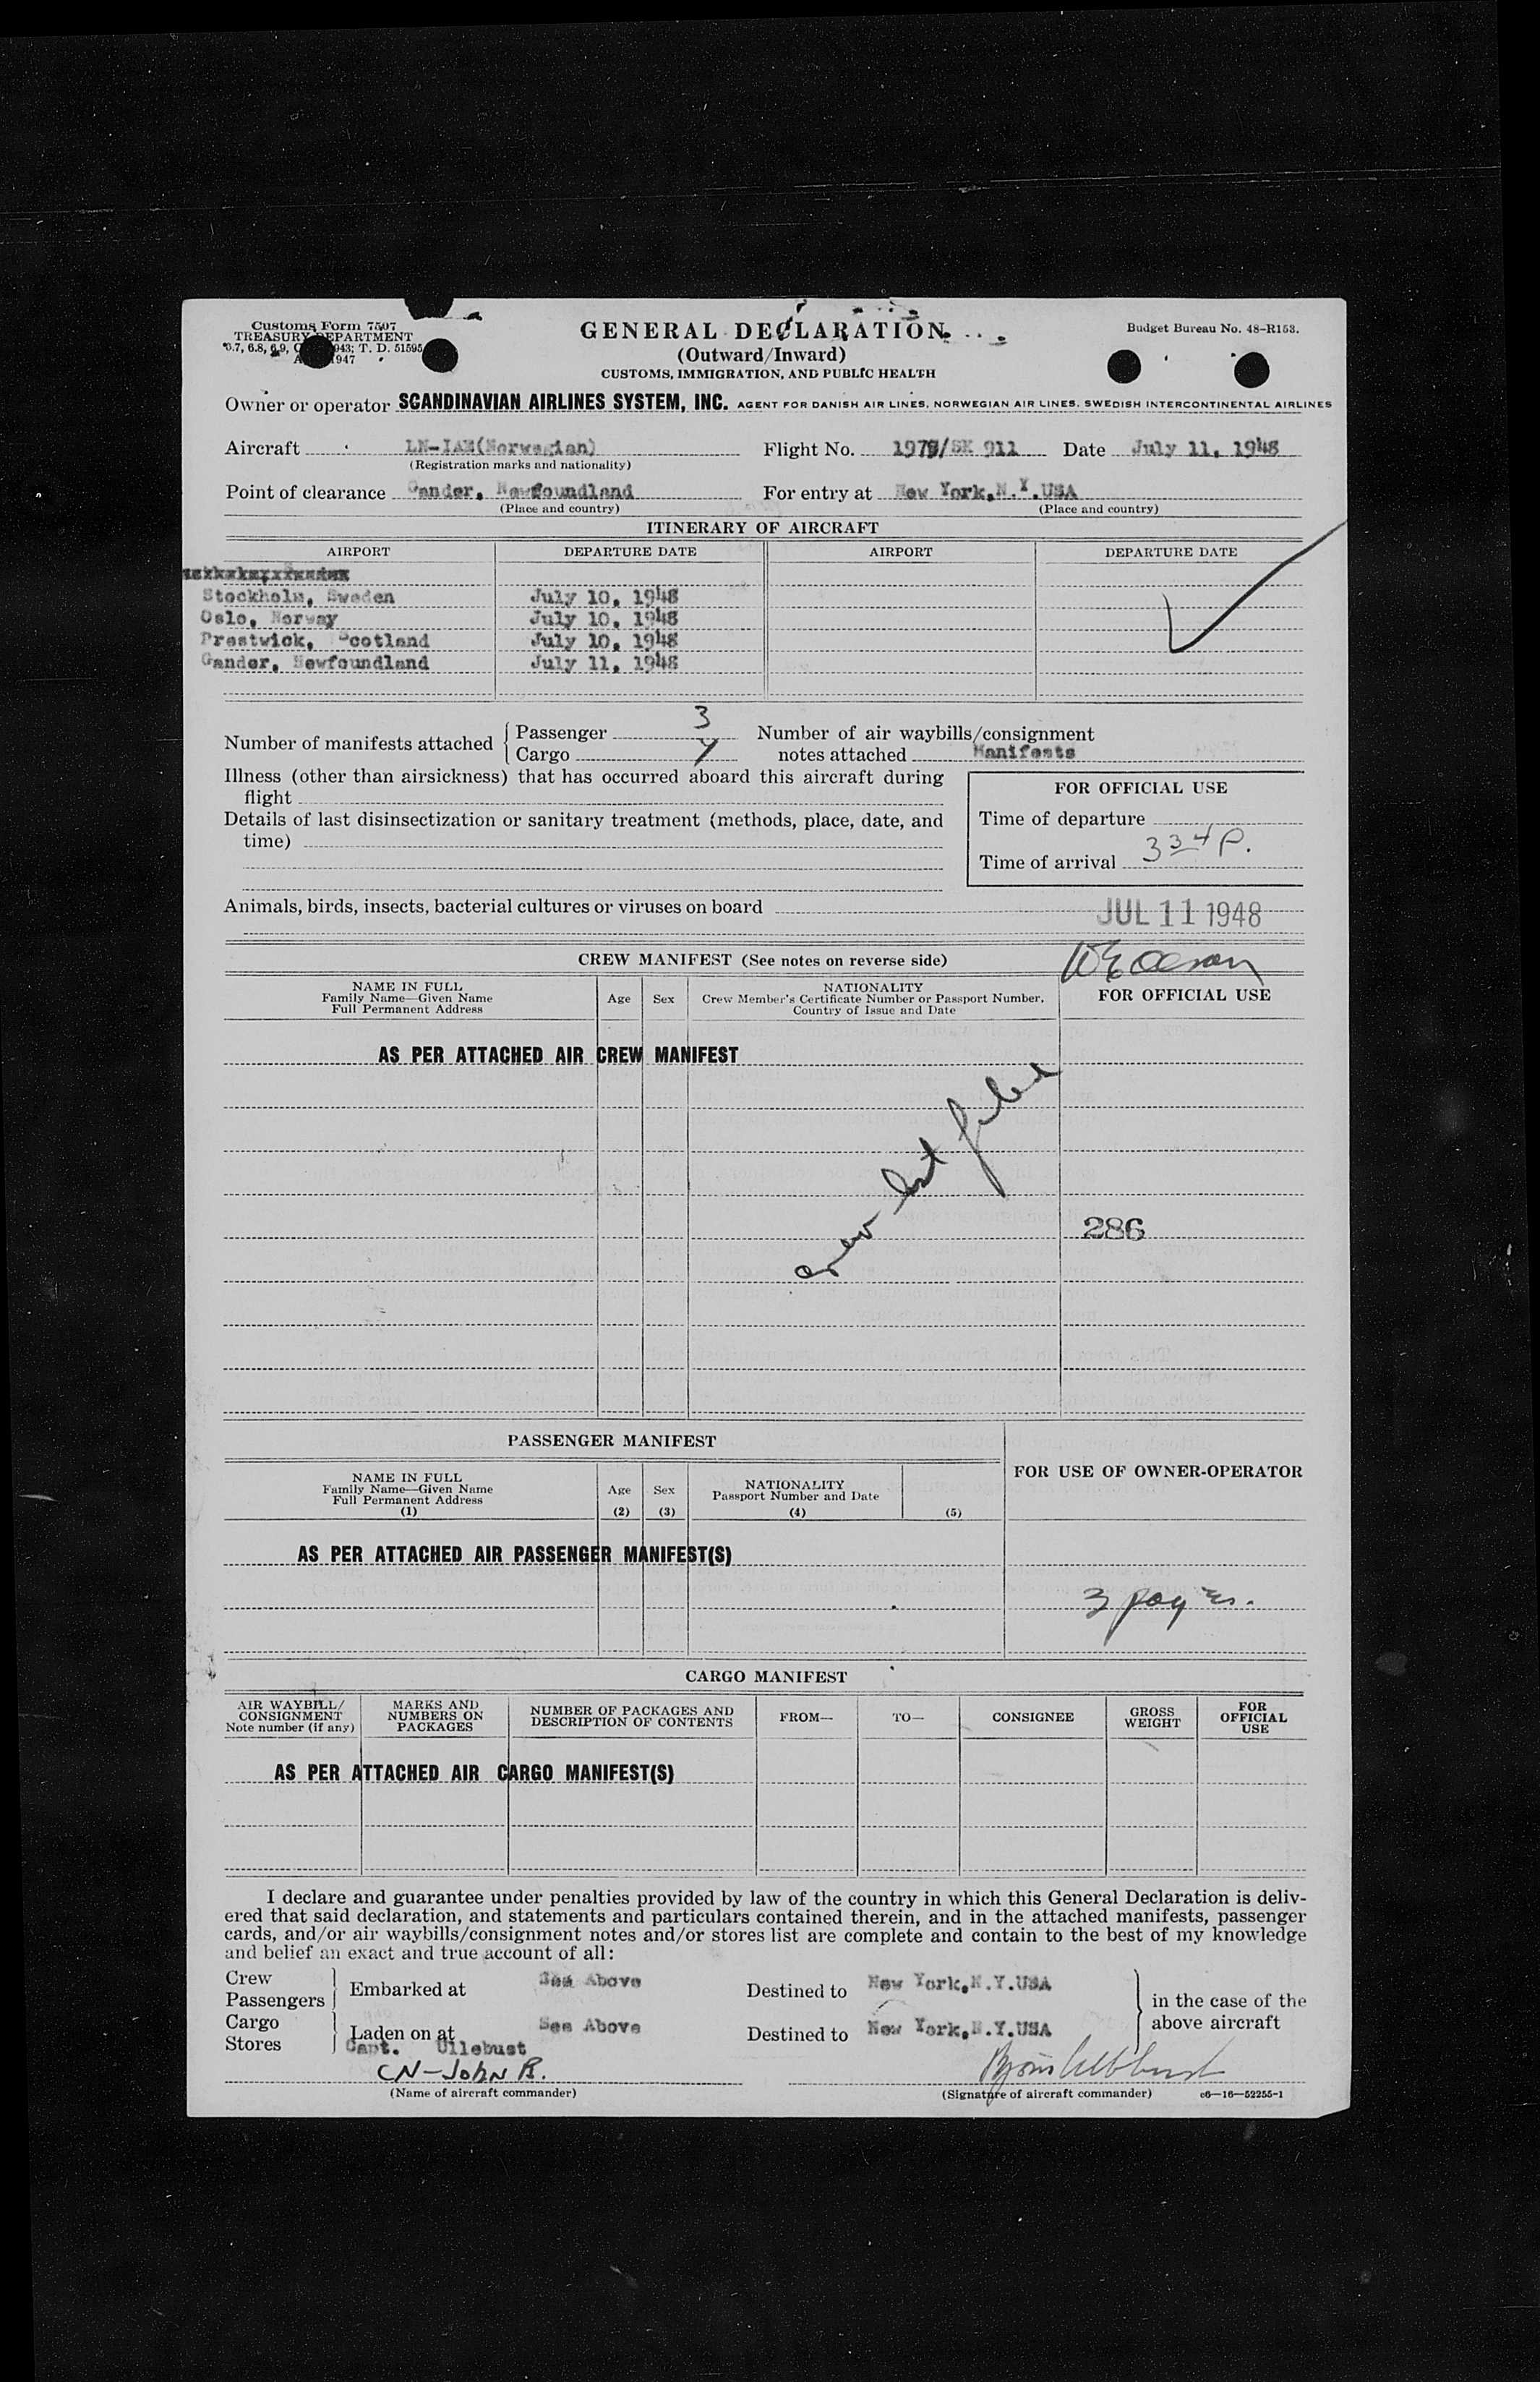 Customs Form 7507
TREASURY DEPARTMENT
GENERAL DECLARATION
(Outward/Inward)
CUSTOMS, IMMIGRATION, AND PUBLIC HEALTH
Budget Bureau No. 48-R153.
Owner or operator SCANDINAVIAN AIRLINES SYSTEM, INC. AGENT FOR DANISH AIR LINES, NORWEGIAN AIR LINES, SWEDISH INTERCONTINENTAL AIRLINES
Aircraft (Norwegian) Flight No. SK 911 Date July 11, 1948
(Registration marks and nationality)
Point of clearance Gander, Newfoundland For entry at New York,N.Y.USA
(Place and country) (Place and country)
ITINERARY OF AIRCRAFT
AIRPORT DEPARTURE DATE AIRPORT DEPARTURE DATE
Stockholm, Sweden July 10, 1948
Oslo, Norway July 10, 1948
Prestwick, Scotland July 10, 1948
Gander, Newfoundland July 11, 1948
Number of manifests attached { Passenger 3 Number of air waybills/consignment
Cargo notes attached Manifests
Illness (other than airsickness) that has occurred aboard this aircraft during
flight
FOR OFFICIAL USE
Details of last disinsectization or sanitary treatment (methods, place, date, and
time)
Time of departure
Time of arrival 334 P.
Animals, birds, insects, bacterial cultures or viruses on board
JUL 11 1948
CREW MANIFEST (See notes on reverse side)
NAME IN FULL
Family Name—Given Name
Full Permanent Address
Age Sex
NATIONALITY
Crew Member's Certificate Number or Passport Number,
Country of Issue and Date
FOR OFFICIAL USE
AS PER ATTACHED AIR CREW MANIFEST
crew list filed
286
PASSENGER MANIFEST
FOR USE OF OWNER-OPERATOR
NAME IN FULL
Family Name—Given Name
Full Permanent Address
(1)
Age
(2)
Sex
(3)
NATIONALITY
Passport Number and Date
(4)
(5)
AS PER ATTACHED AIR PASSENGER MANIFEST(S)
3 pages.
CARGO MANIFEST
AIR WAYBILL/
CONSIGNMENT
Note number (if any)
MARKS AND
NUMBERS ON
PACKAGES
NUMBER OF PACKAGES AND
DESCRIPTION OF CONTENTS
FROM—
TO—
CONSIGNEE
GROSS
WEIGHT
FOR
OFFICIAL
USE
AS PER ATTACHED AIR CARGO MANIFEST(S)
I declare and guarantee under penalties provided by law of the country in which this General Declaration is deliv-
ered that said declaration, and statements and particulars contained therein, and in the attached manifests, passenger
cards, and/or air waybills/consignment notes and/or stores list are complete and contain to the best of my knowledge
and belief an exact and true account of all:
Crew
Passengers } Embarked at See Above Destined to New York,N.Y.USA
Cargo
Stores } Laden on at See Above Destined to New York,N.Y.USA
in the case of the
above aircraft
Capt. Ullebust
CN-JOHN R.
(Name of aircraft commander) (Signature of aircraft commander) c6—16—52255-1